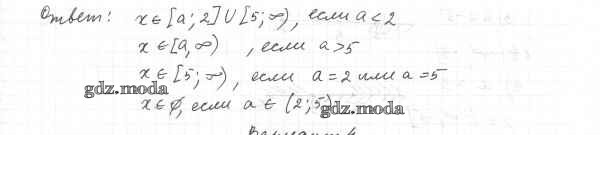 Ответ: x ∈ [a; 2] ∪ [5; ∞), если a < 2
x ∈ [a, ∞) , если a > 5
x ∈ [5; ∞), если a = 2 или a = 5
gdz.moda
x ∈ ∅, если a ∈ (2; 5)
gdz.moda